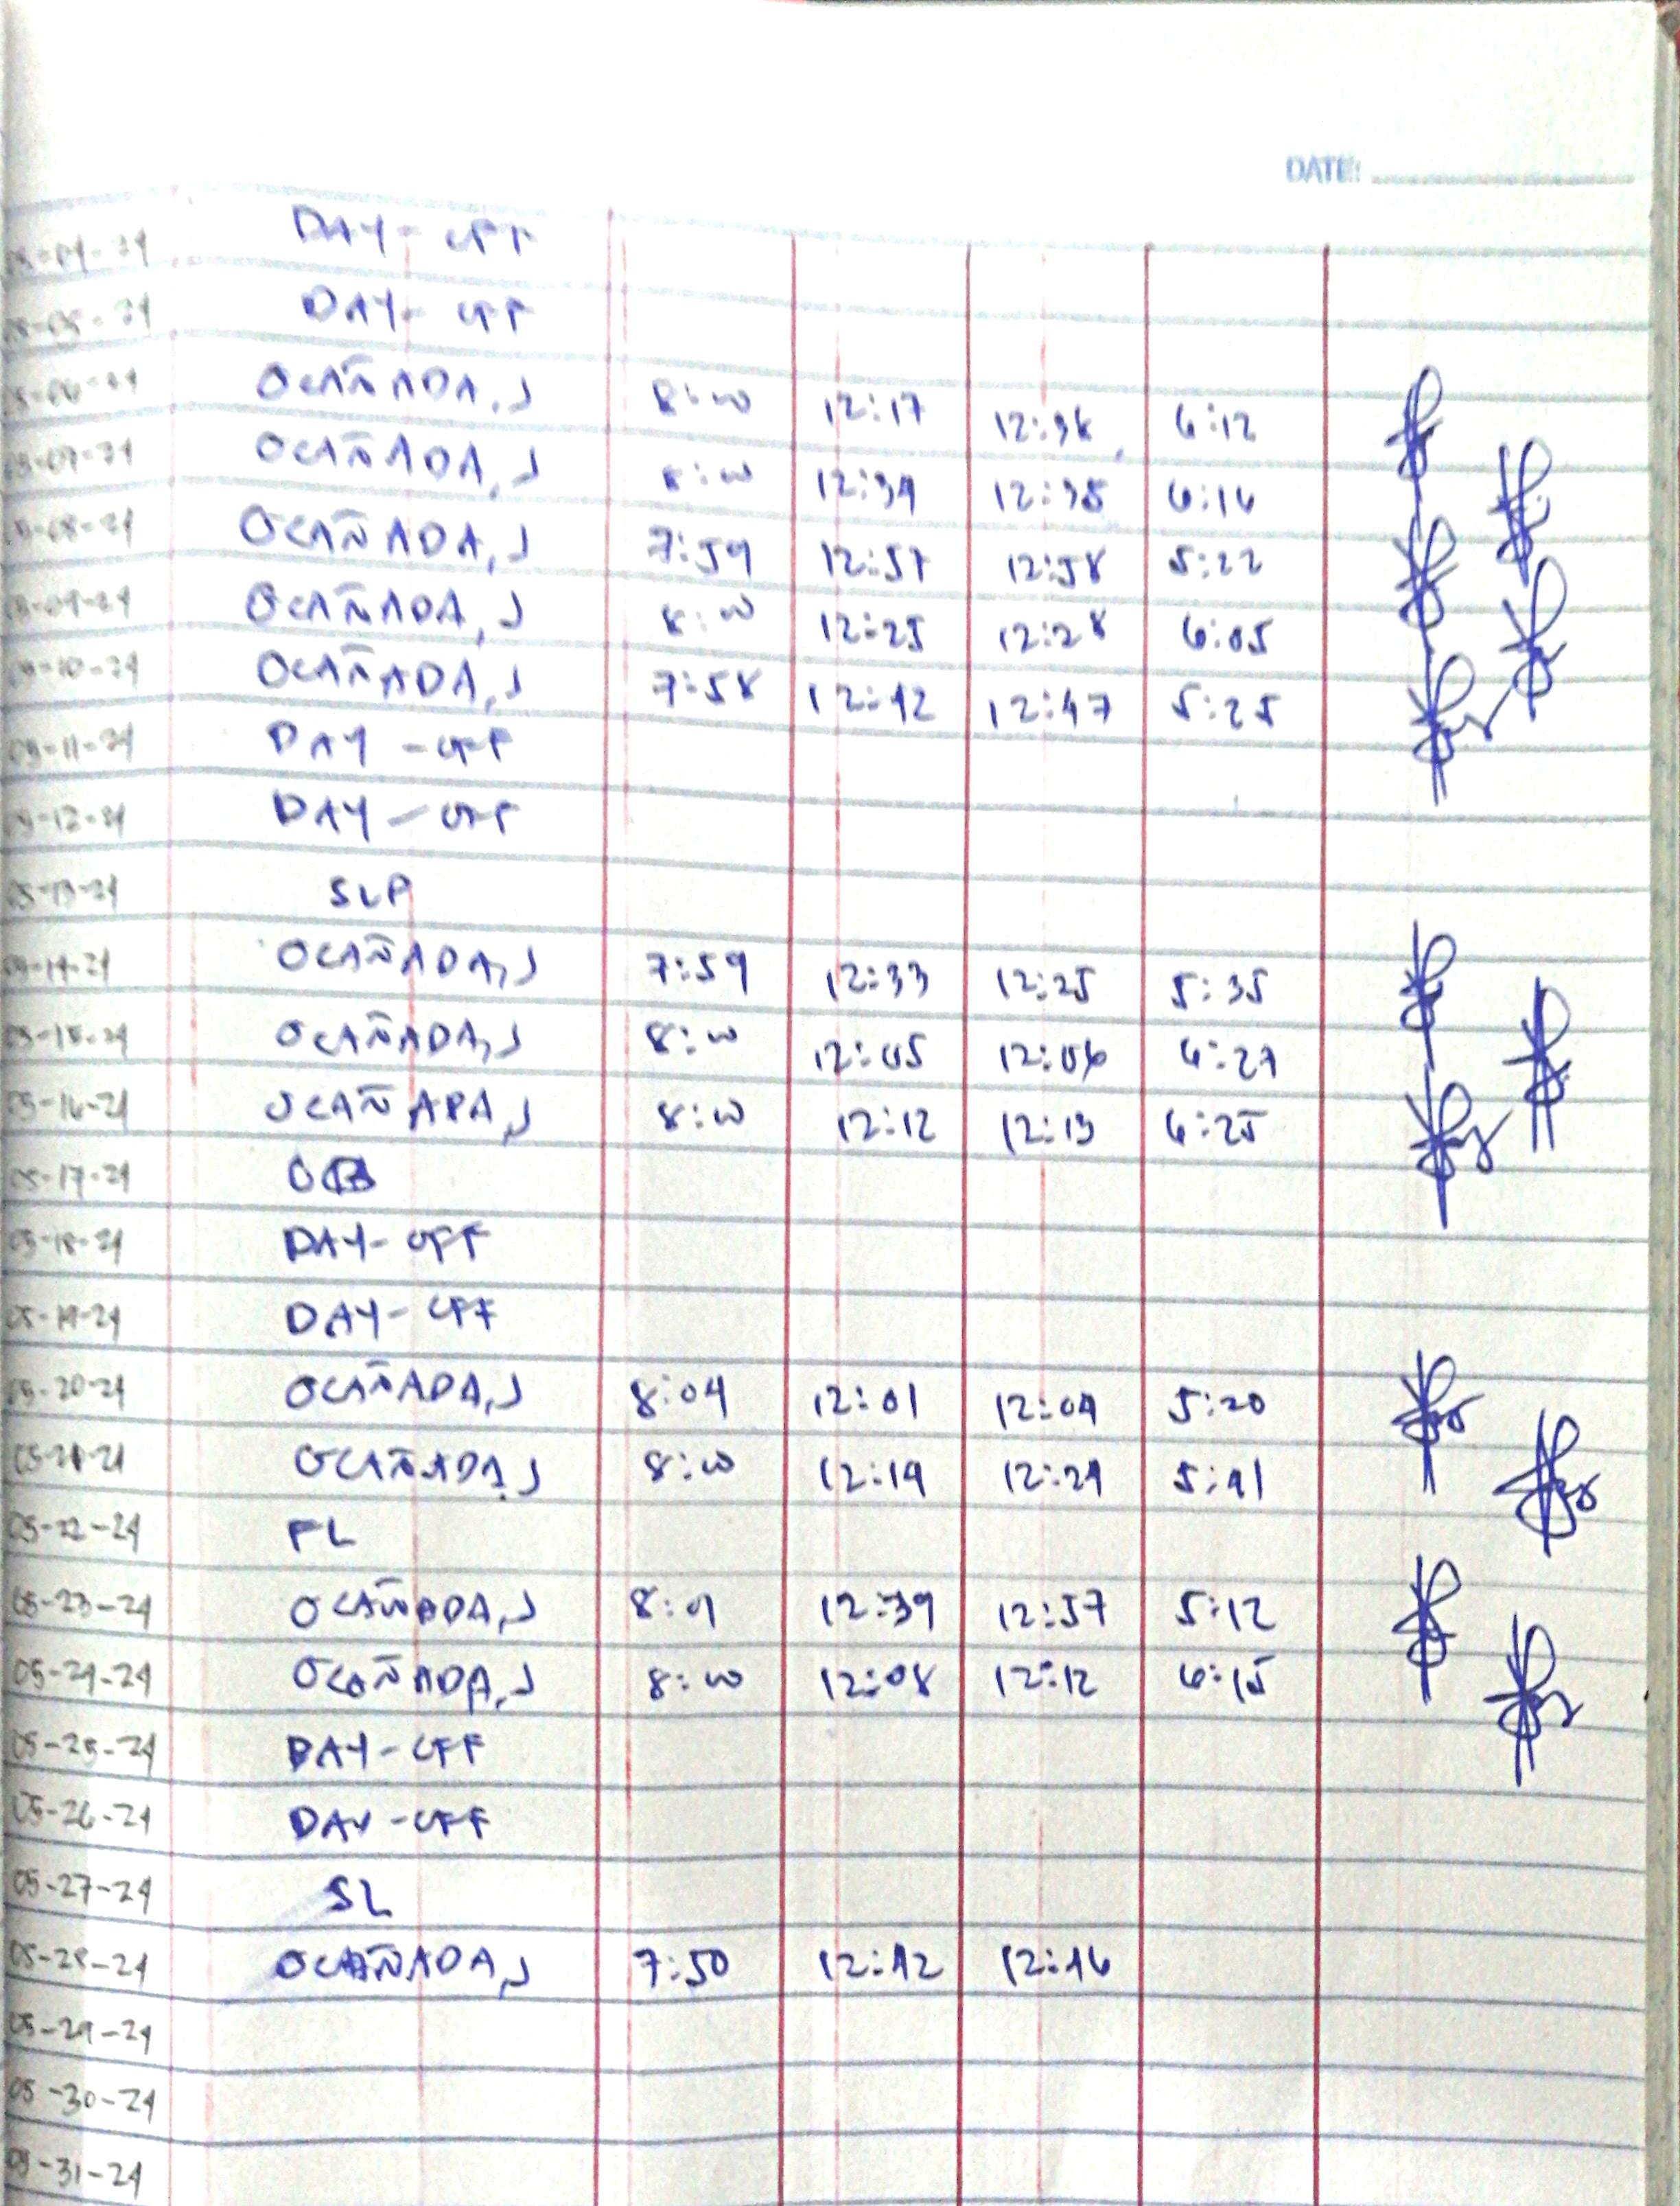 DATE:
05-04-24 DAY-OFF
05-05-24 DAY-OFF
05-06-24 OCAÑADA, J 8:00 12:17 12:36 6:12
05-07-24 OCAÑADA, J 8:00 12:34 12:35 6:16
05-08-24 OCAÑADA, J 7:59 12:57 12:58 5:22
05-09-24 OCAÑADA, J 8:00 12:25 12:28 6:05
05-10-24 OCAÑADA, J 7:58 12:42 12:47 5:25
05-11-24 DAY-OFF
05-12-24 DAY-OFF
05-13-24 SLP
05-14-24 OCAÑADA, J 7:59 12:33 12:25 5:35
05-15-24 OCAÑADA, J 8:00 12:05 12:06 6:27
05-16-24 OCAÑADA, J 8:00 12:12 12:13 6:25
05-17-24 OB
05-18-24 DAY-OFF
05-19-24 DAY-OFF
05-20-24 OCAÑADA, J 8:04 12:01 12:04 5:20
05-21-24 OCAÑADA, J 8:00 12:19 12:24 5:41
05-22-24 FL
05-23-24 OCAÑADA, J 12:39 12:57 5:12
05-24-24 OCAÑADA, J 8:00 12:08 12:12 6:15
05-25-24 DAY-OFF
05-26-24 DAY-OFF
05-27-24 SL
05-28-24 OCAÑADA, J 7:50 12:42 12:46
05-29-24
05-30-24
05-31-24